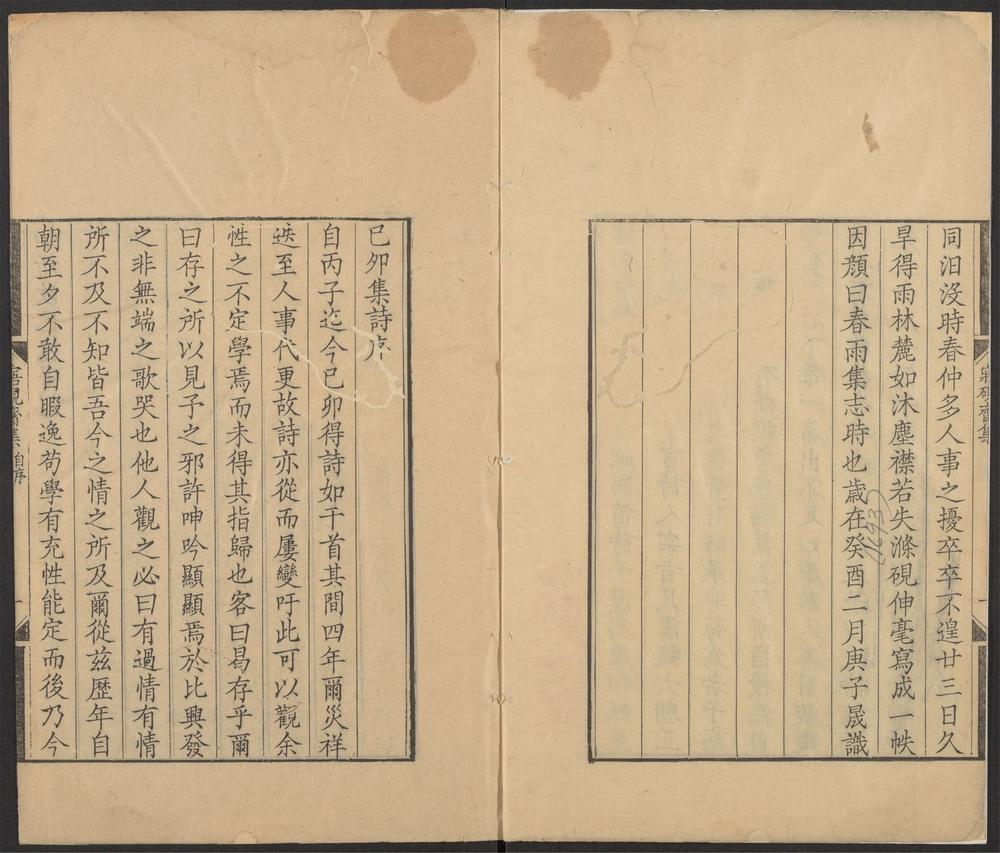 同汨沒時春仲多人事之擾卒卒不遑廿三日久
旱得雨林麓如沐塵襟若失滌硯伸毫寫成一帙
因顏曰春雨集志時也歲在癸酉二月庚子晟識
(1693)
寤硯齋集
一
己卯集詩序
自丙子迄今己卯得詩如干首其間四年爾災祥
迭至人事代更故詩亦從而屢變吁此可以觀余
性之不定學焉而未得其指歸也客曰曷存乎爾
曰存之所以見予之邪許呻吟顯顯焉於比興發
之非無端之歌哭也他人觀之必曰有過情有情
所不及不知皆吾今之情之所及爾從茲歷年自
朝至夕不敢自暇逸苟學有充性能定而後乃今
寤硯齋集 自序
一